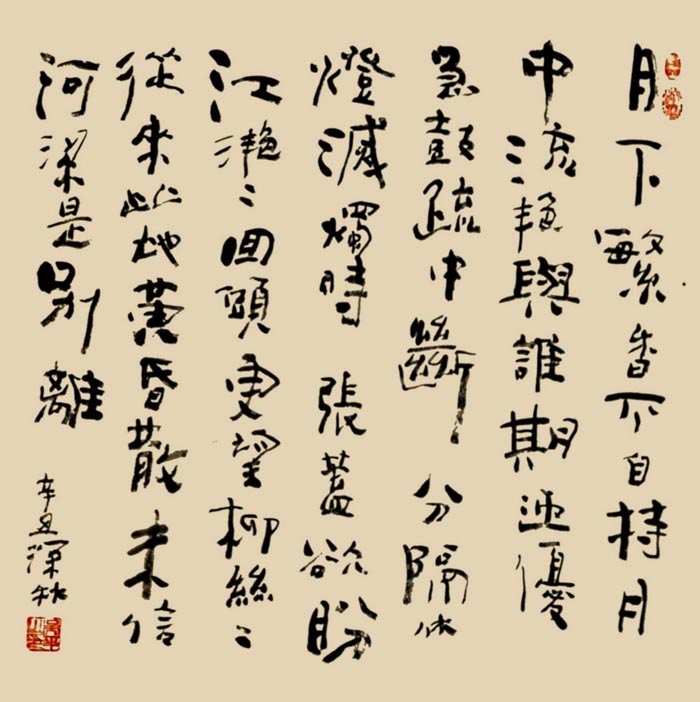 月下繁香不自持月
中流滟與誰期迎優
急鼓疏中斷分隔休
燈滅燭時張蓋欲盼
江滟〻回頭更望柳絲〻
從來此地黄昏散未信
河梁是别離
辛丑深秋